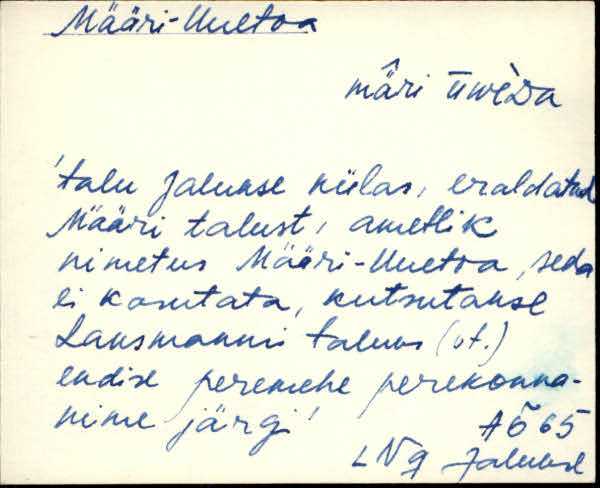 Määri-Uuetoa
mâri ūwèDa
'talu Jalukse külas, eraldatud
Määri talust, ametlik
nimetus Määri-Uuetoa, seda
ei kasutata, kutsutakse
Lausmanni taluks (vt.)
endise peremehe perekonna-
nime järgi'
AÕ 65
LNg Jalukse